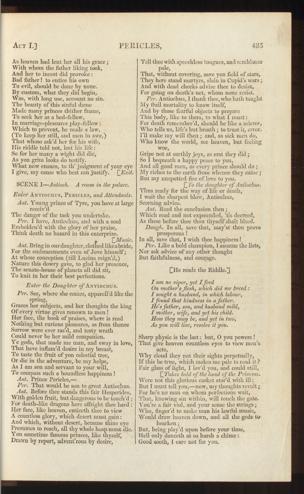 ACT I.]
PERICLES,
485
As heaven had lent her all his grace;
With whom the father liking took,
And her to incest did provoke:
Bad father! to entice his own
To evil, should be done by none.
By custom, what they did begin,
Was, with long use, account no sin.
The beauty of this sinful dame
Made many princes thither frame,
To seek her as a bed-fellow,
In marriage-pleasures play-fellow:
Which to prevent, he made a law,
(To keep her still, and men in awe,)
That whoso ask'd her for his wife,
His riddle told not, lost his life:
So for her many a wight did die,
As yon grim looks do testify.
What now ensues, to th' judgment of your eye
I give, my cause who best can justify. [Exit.
SCENE I—Antioch. A room in the palace.
Enter ANTIOCHUS, PERICLES, and Attendants.
Ant. Young prince of Tyre, you have at large
receiv'd
The danger of the task you undertake.
Per. I have, Antiochus, and with a soul
Embolden'd with the glory of her praise,
Think death no hazard in this enterprize.
[Music.
Ant. Bring in our daughter, clothed like a bride,
For the embracements even of Jove himself;
At whose conception (till Lucina reign'd,)
Nature this dowry gave, to glad her presence,
The senate-house of planets all did sit,
To knit in her their best perfections.
Enter the Daughter of ANTIOCHUS.
Per. See, where she comes, apparell'd like the
spring,
Graces her subjects, and her thoughts the king
Of every virtue gives renown to men!
Her face, the book of praises, where is read
Nothing but curious pleasures, as from thence
Sorrow were ever ras'd, and testy wrath
Could never be her mild companion.
Ye gods, that made me man, and sway in love,
That have inflam'd desire in my breast,
To taste the fruit of yon celestial tree,
Or die in the adventure, be my helps,
As I am son and servant to your will,
To compass such a boundless happiness!
Ant. Prince Pericles,—
Per. That would be son to great Antiochus.
Ant. Before thee stands this fair Hesperides,
With golden fruit, but dangerous to be touch'd;
For death-like dragons here affright thee hard:
Her face, like heaven, enticeth thee to view
A countless glory, which desert must gain:
And which, without desert, because thine eye
Presumes to reach, all thy whole heap must die.
Yon sometime famous princes, like thyself,
Drawn by report, advent'rous by desire,
Tell thee with speechless tongues, and semblance
pale,
That, without covering, save yon field of stars,
They here stand martyrs, slain in Cupid's wars;
And with dead cheeks advise thee to desist,
For going on death's net, whom none resist.
Per. Antiochus, I thank thee, who hath taught
My frail mortality to know itself,
And by those fearful objects to prepare
This body, like to them, to what I must:
For death remember'd, should be like a mirror,
Who tells us, life's but breath; to trust it, error.
I'll make my will then; and, as sick men do,
Who know the world, see heaven, but feeling
woe,
Gripe not at earthly joys, as erst they did;
So I bequeath a happy peace to you,
And all good men, as every prince should do;
My riches to the earth from whence they came;
But my unspotted fire of love to you.
[To the daughter of Antiochus.
Thus ready for the way of life or death,
I wait the sharpest blow, Antiochus,
Scorning advice.
Ant. Read the conclusion then;
Which read and not expounded, 'tis decreed,
As these before thee thou thyself shalt bleed.
Daugh. In all, save that, may'st thou prove
prosperous!
In all, save that, I wish thee happiness!
Per. Like a bold champion, I assume the lists,
Nor ask advice of any other thought
But faithfulness, and courage.
[He reads the Riddle.]
I am no viper, yet I feed
On mother's flesh, which did me breed:
I sought a husband, in which labour,
I found that kindness in a father.
He's father, son, and husband mild,
I mother, wife, and yet his child.
How they may be, and yet in two,
As you will live, resolve it you.
Sharp physic is the last: but, O you powers!
That give heaven countless eyes to view men's
acts,
Why cloud they not their sights perpetually,
If this be true, which makes me pale to read it?
Fair glass of light, I lov'd you, and could still,
[Takes hold of the hand of the Princess.
Were not this glorious casket stor'd with ill:
But I must tell you,—now, my thoughts revolt;
For he's no man on whom perfections wait,
That, knowing sin within, will touch the gate.
You're a fair viol, and your sense the strings;
Who, finger'd to make man his lawful music,
Would draw heaven down, and all the gods to
hearken;
But, being play'd upon before your time,
Hell only danceth at so harsh a chime:
Good sooth, I care not for you.